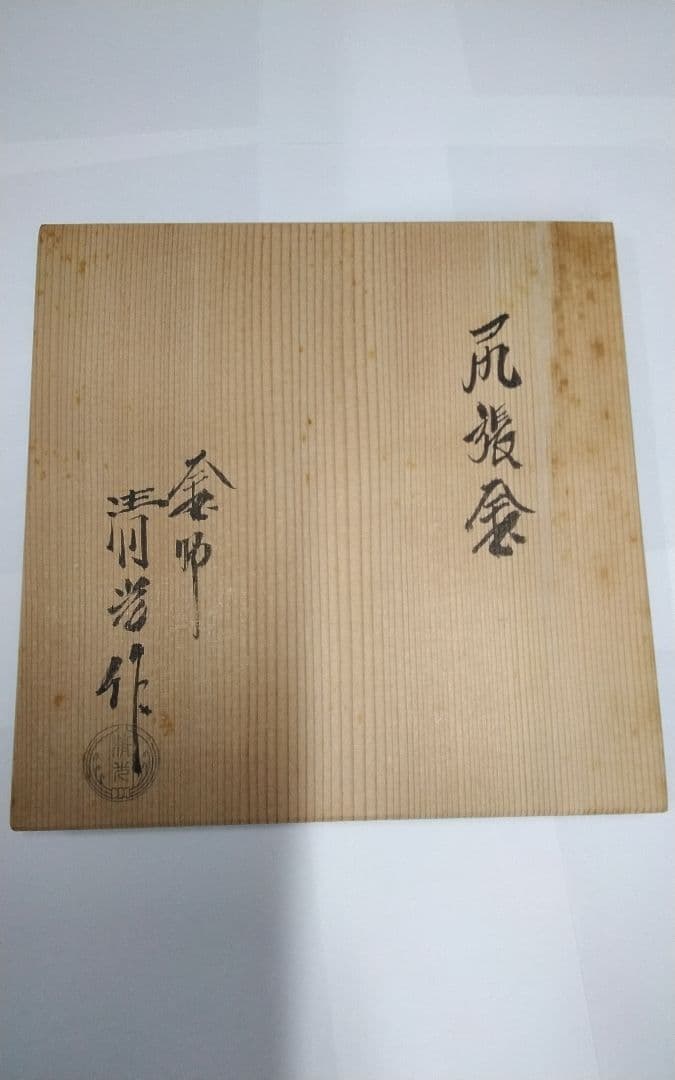 尻張釜
釜師
清光作